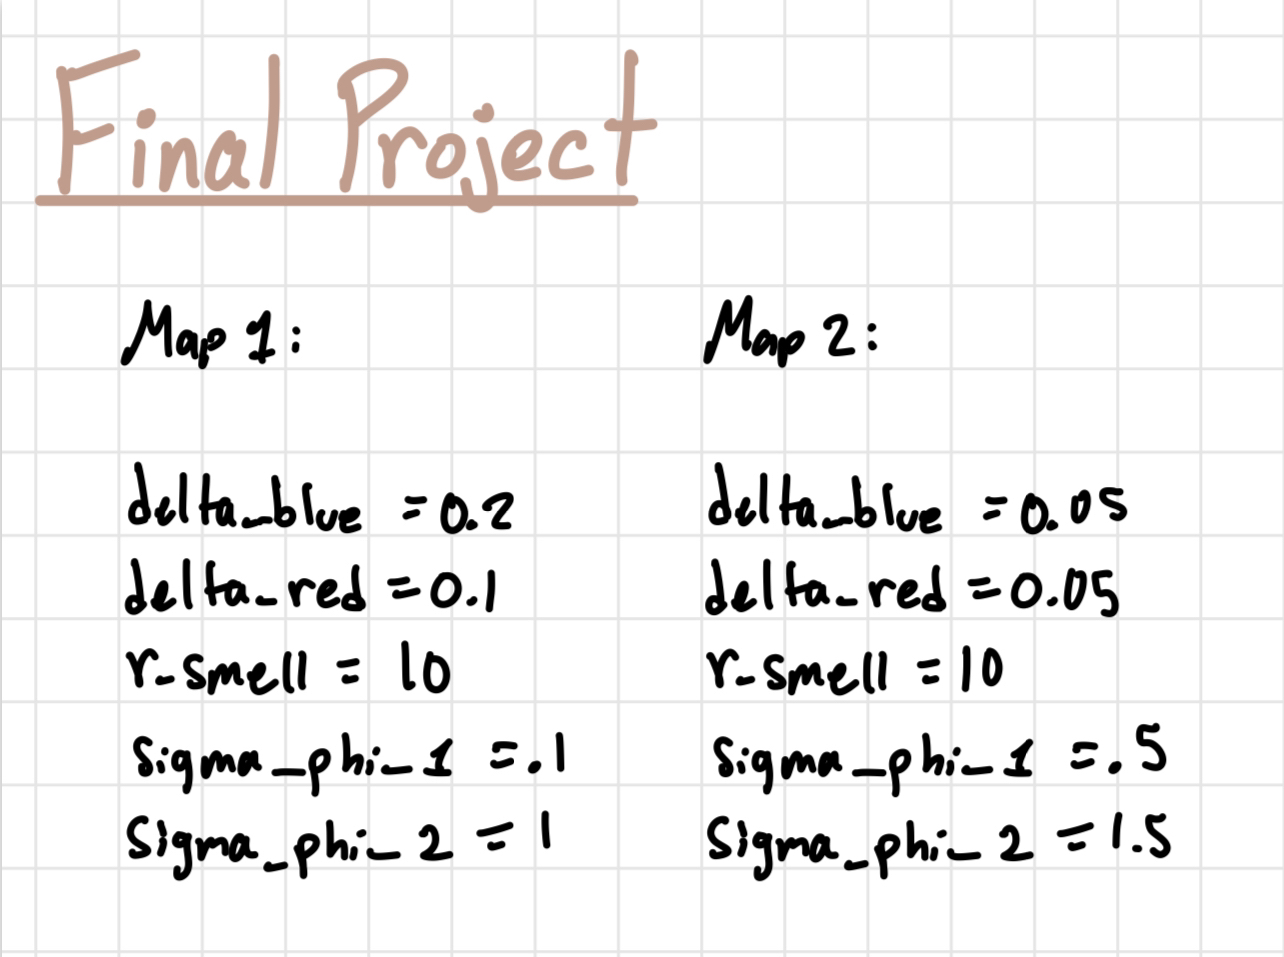 Final Project
Map 1:
delta_blue = 0.2
delta_red = 0.1
r_smell = 10
sigma_phi_1 = .1
sigma_phi_2 = 1
Map 2:
delta_blue = 0.05
delta_red = 0.05
r_smell = 10
sigma_phi_1 = .5
sigma_phi_2 = 1.5